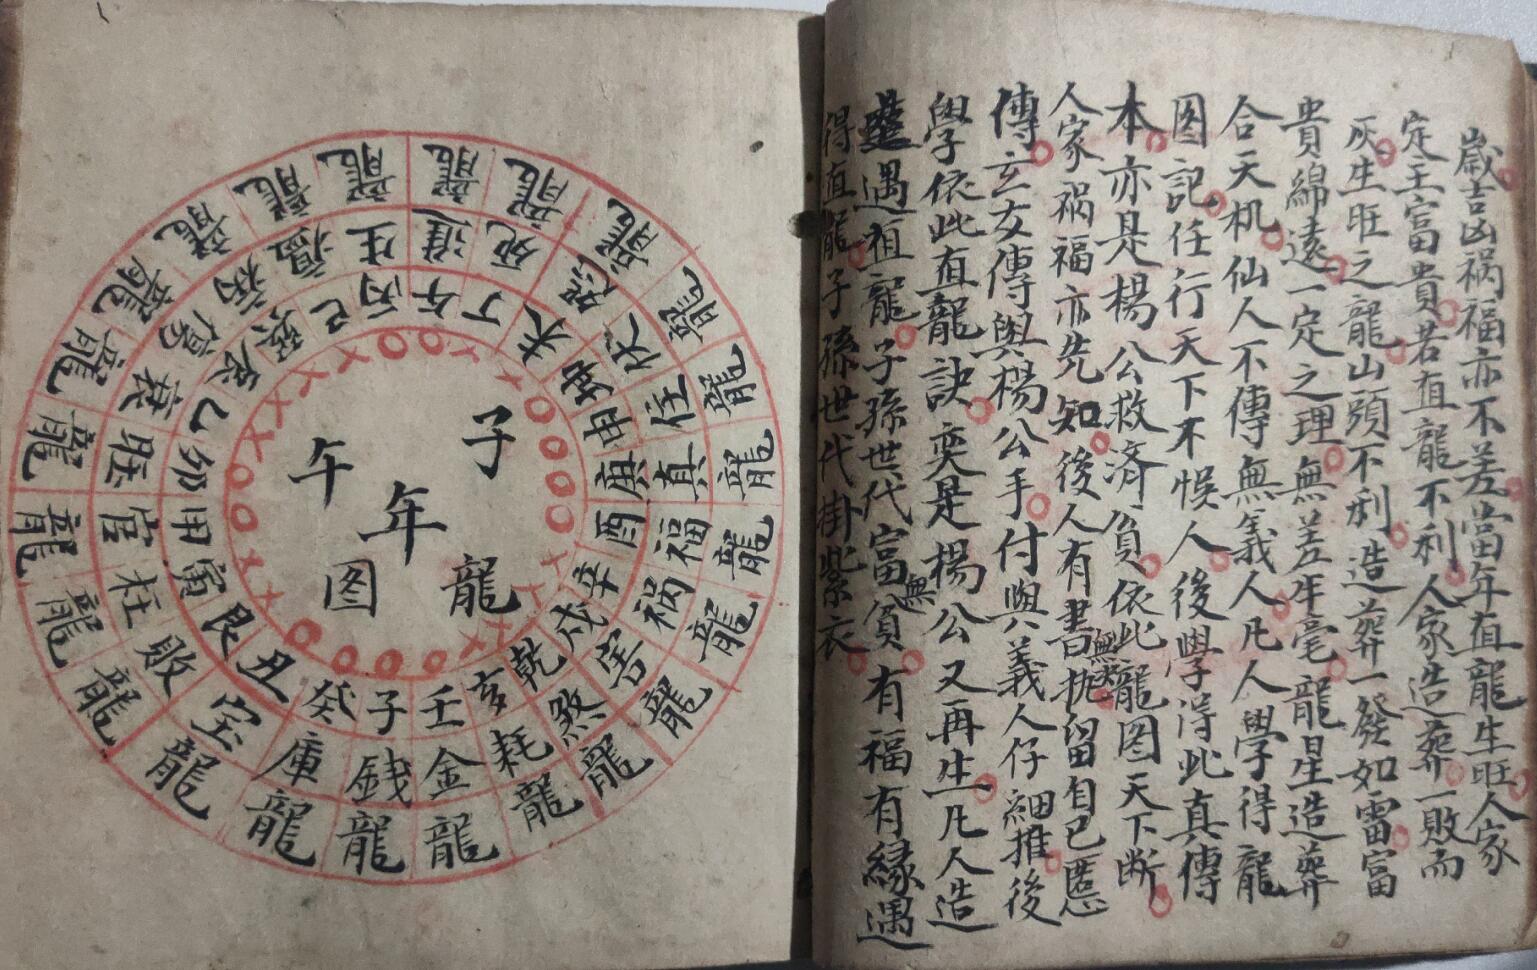 歲吉凶祸福亦不差當年直龍生旺人家
定主富貴若直龍不利人家造葬一敗而
灰生旺之龍山頭不利造葬一發如雷富
貴綿遠一定之理無差半毫龍星造葬
合天机仙人不傳無義人凡人學得龍
图記任行天下不悞人後學得此真傳
本亦是楊公救濟貧依此龍图天下断
人家祸福亦先知後人有書抛留自己慝
傳玄女傳與楊公手付與義人仔細推後
學依此直龍訣奕是楊公又再生凡人造
遇直龍子孫世代富無貧有福有緣遇
得直龍子孫世代掛紫衣
子午年龍图
壬子癸丑艮寅甲卯乙辰巽巳丙午丁未坤申庚酉辛戌乾亥
金錢庫宝敗枉官旺衰病瘟生進死煞伏任真福祸害煞耗
龍龍龍龍龍龍龍龍龍龍龍龍龍龍龍龍龍龍龍龍龍龍龍龍